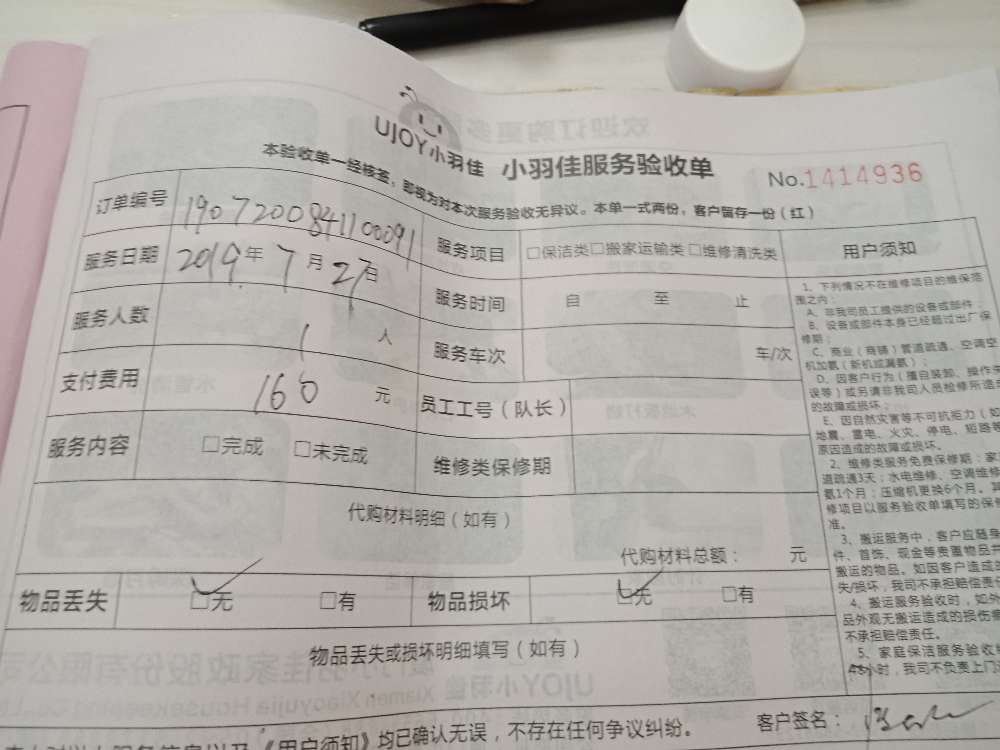 UJOY小羽佳 小羽佳服务验收单 No.1414936
本验收单一经核签，即视为对本次服务验收无异议。本单一式两份，客户留存一份（红）
订单编号 190720084110091 服务项目 □保洁类□搬家运输类□维修清洗类
服务日期 2019年7月27日 服务时间 自 至 止
服务人数 1人 服务车次 车/次
支付费用 160元 员工工号（队长）
服务内容 □完成 □未完成 维修类保修期
代购材料明细（如有）
代购材料总额： 元
物品丢失 □无 □有 物品损坏 □无 □有
物品丢失或损坏明细填写（如有）
《用户须知》均已确认无误，不存在任何争议纠纷。 客户签名：
用户须知
1、下列情况不在维修项目的维保范
围之内：
A、非我司员工提供的设备或部件；
B、设备或部件本身已经超过出厂保
修期；
C、商业（商铺）管道疏通、空调空
机加氨（新机或漏氨）；
D、因客户行为（擅自装卸、操作失
误等）或另请非我司人员检修所造
的故障或损坏；
E、因自然灾害等不可抗拒力（如
地震、雷电、火灾、停电、短路等
原因造成的故障或损坏。
2、维修类服务免费保修期：家
道疏通3天；水电维修、空调维修
氨1个月；压缩机更换6个月。其
修项目以服务验收单填写的保修
准。
3、搬运服务中，客户应随身
件、首饰、现金等贵重物品并
搬运的物品。如因客户造成的
失/损坏，我司不承担赔偿责
4、搬运服务验收时，如外
品外观无搬运造成的损伤
不承担赔偿责任。
5、家庭保洁服务验收
48小时，我司不负责上门